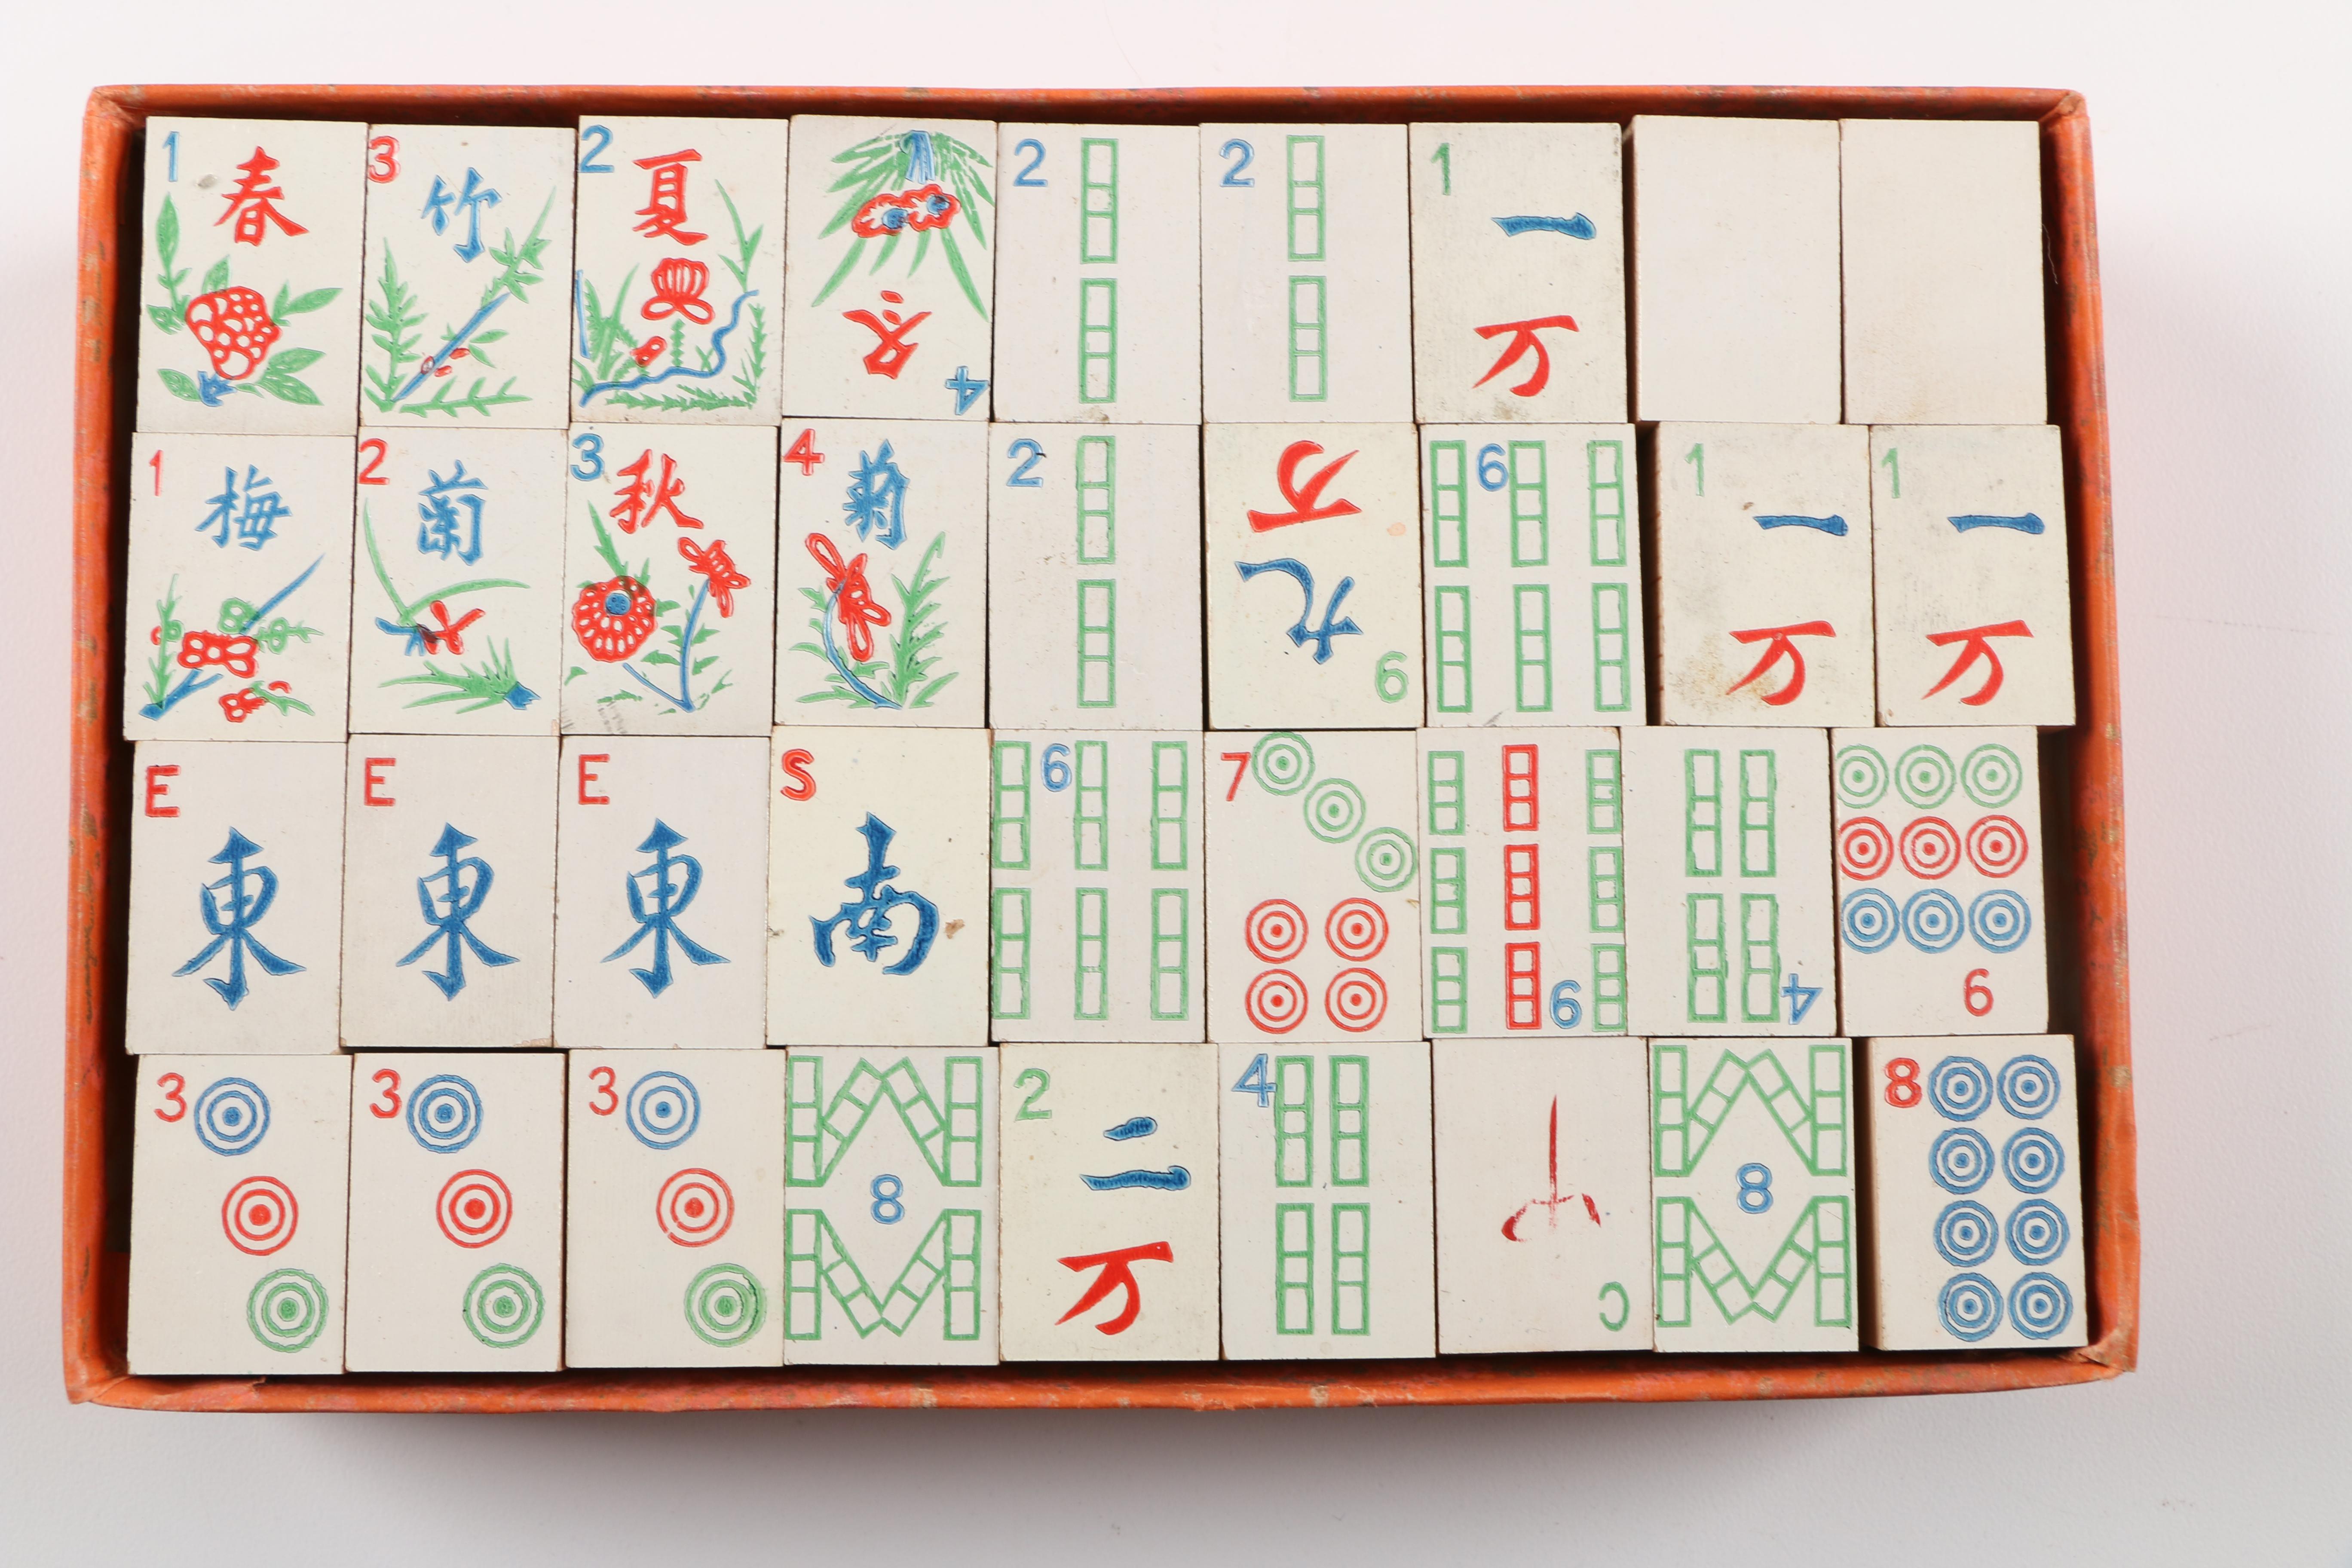 1 春
3 竹
2 夏
4 冬
2
2
1 一 万
1 梅
2 蘭
3 秋
4 菊
2
9 九 万
6
1 一 万
1 一 万
E 東
E 東
E 東
S 南
6
7
9
4
9
3
3
3
8
2 二 万
4
C
8
8